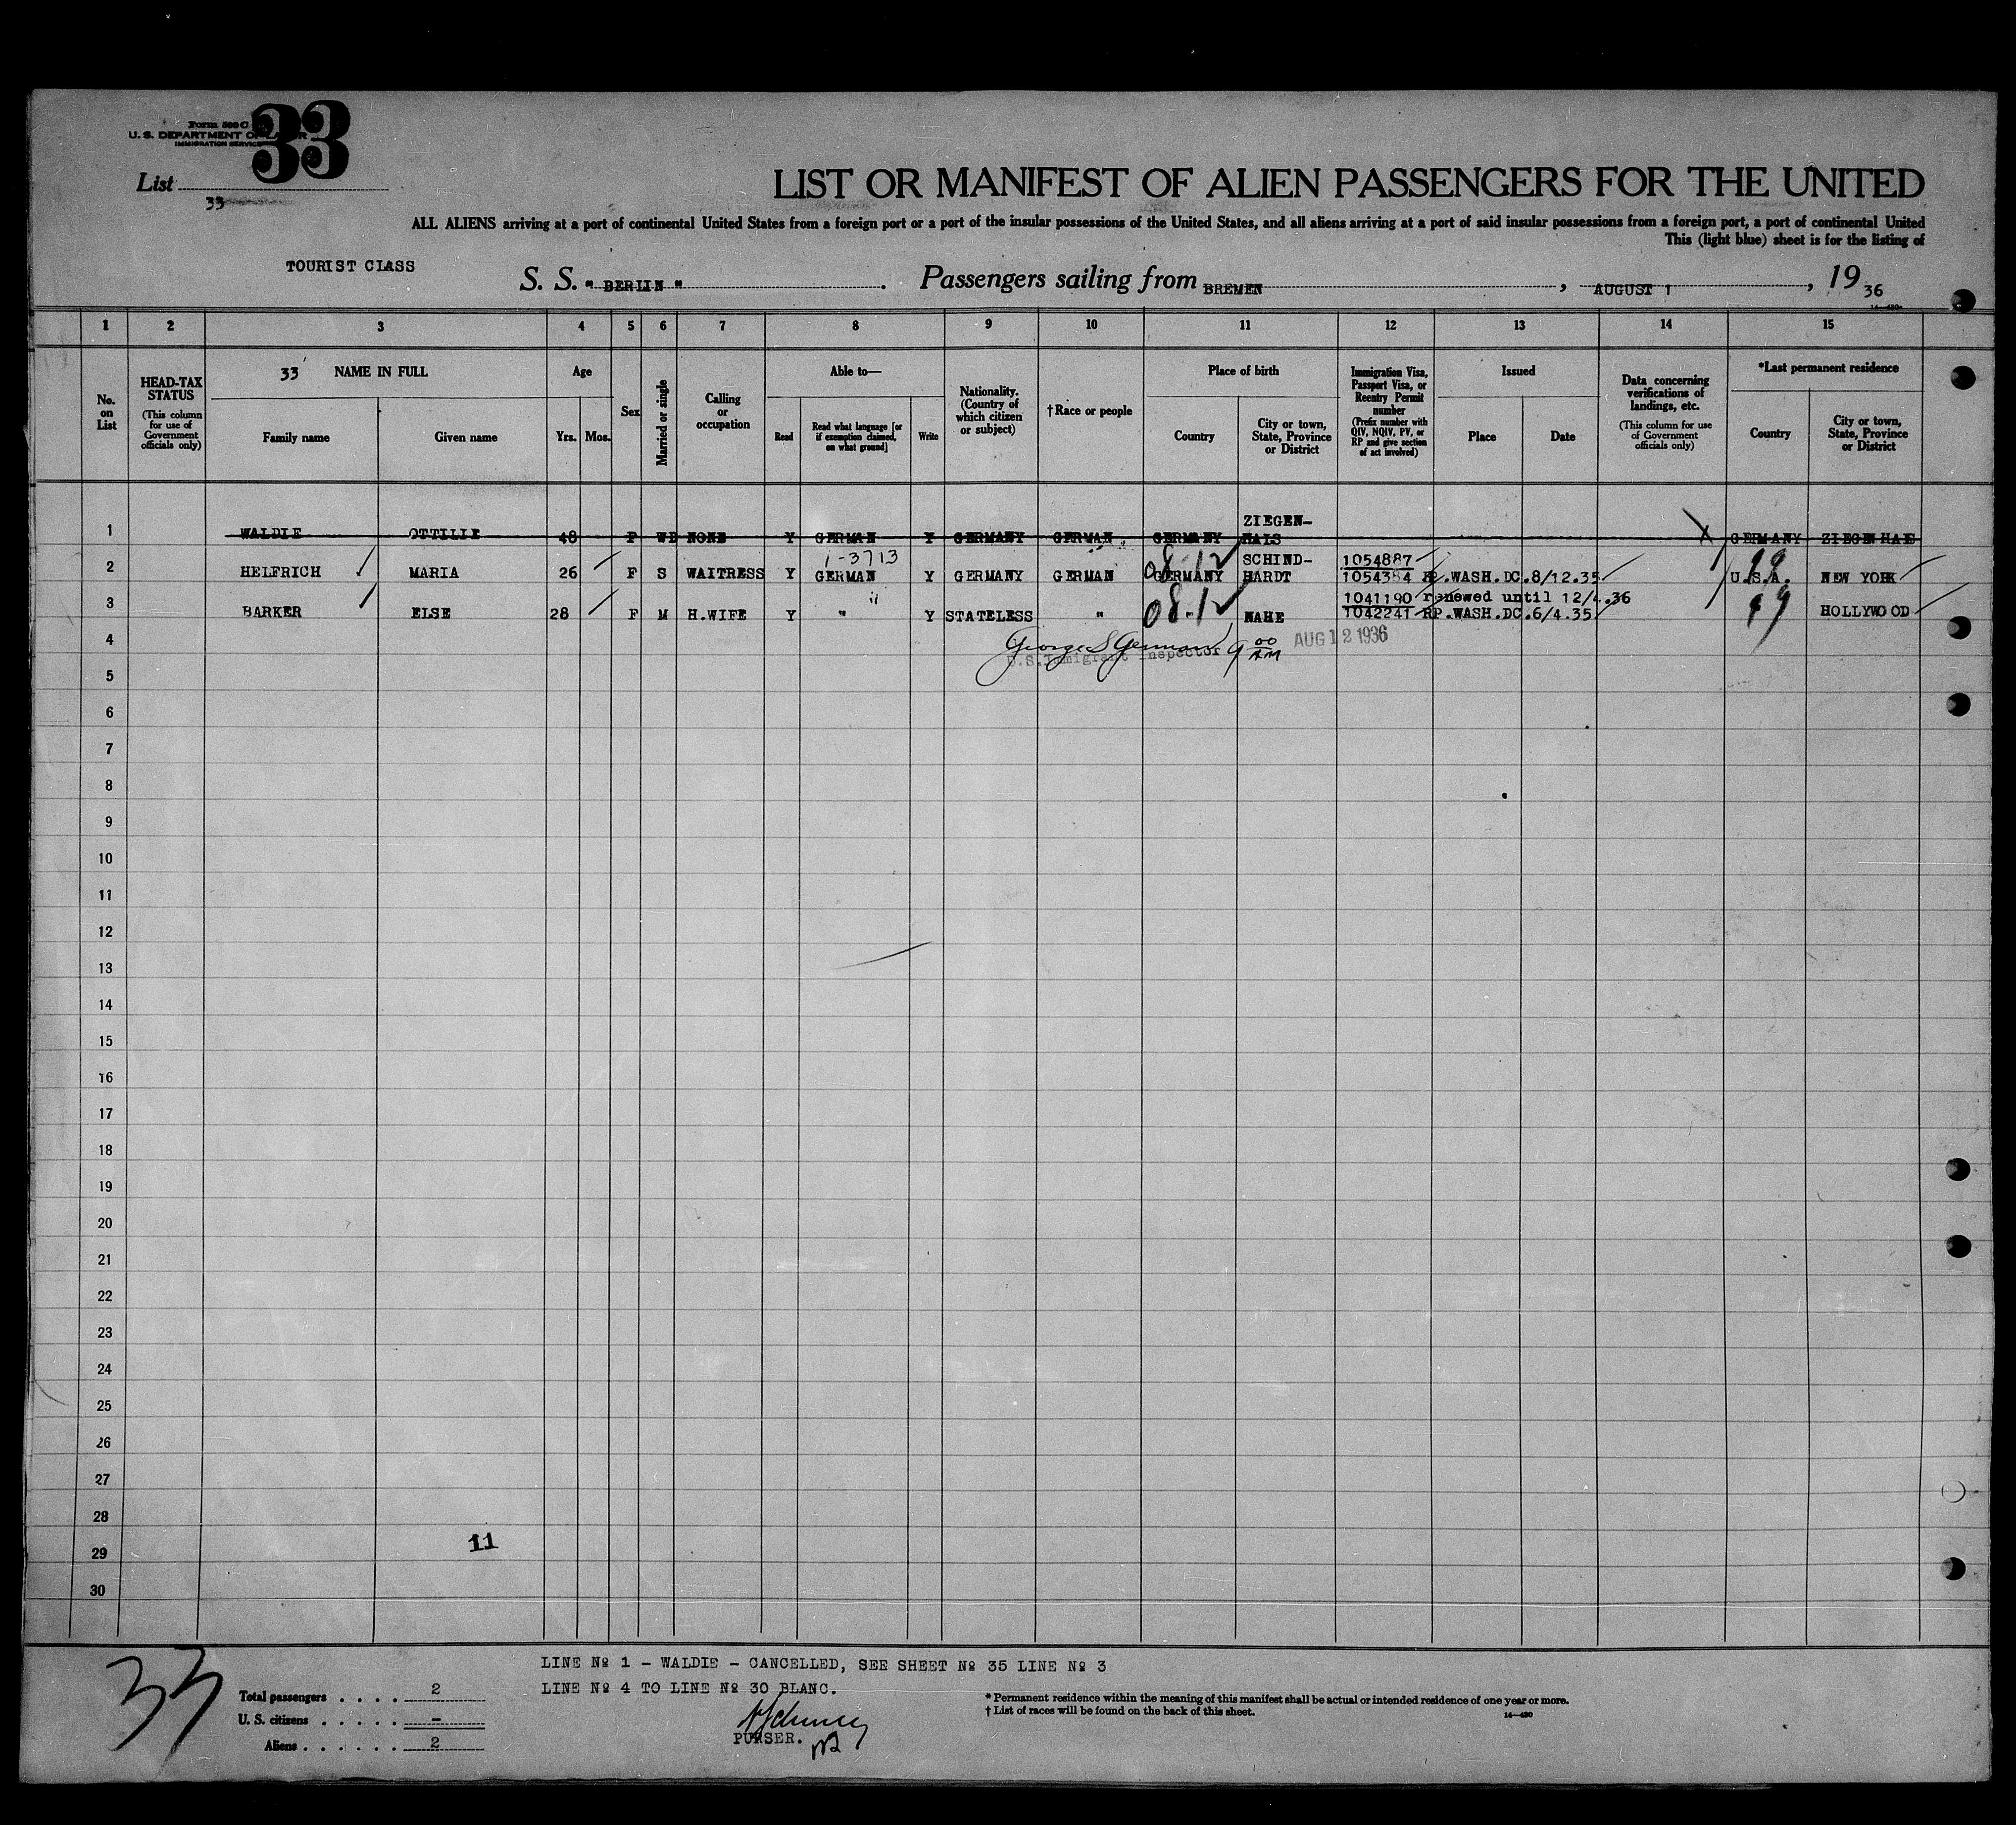 Form 500 C
U. S. DEPARTMENT OF LABOR
IMMIGRATION SERVICE
33
List
33
LIST OR MANIFEST OF ALIEN PASSENGERS FOR THE UNITED
ALL ALIENS arriving at a port of continental United States from a foreign port or a port of the insular possessions of the United States, and all aliens arriving at a port of said insular possessions from a foreign port, a port of continental United
This (light blue) sheet is for the listing of
TOURIST CLASS
S. S. " BERLIN " . Passengers sailing from BREMEN , AUGUST 1 , 19 36
1 2 3 4 5 6 7 8 9 10 11 12 13 14 15
No. on List
HEAD-TAX STATUS
(This column for use of Government officials only)
33 NAME IN FULL
Family name Given name
Age
Yrs. Mos.
Sex
Married or single
Calling or occupation
Able to—
Read
Read what language [or if exemption claimed, on what ground]
Write
Nationality. (Country of which citizen or subject)
†Race or people
Place of birth
Country
City or town, State, Province or District
Immigration Visa, Passport Visa, or Reentry Permit number
(Prefix number with QIV, NQIV, PV, or RP and give section of act involved)
Issued
Place Date
Data concerning verifications of landings, etc.
(This column for use of Government officials only)
*Last permanent residence
Country
City or town, State, Province or District
1 WALDIE OTTILIE 48 F WD NONE Y GERMAN Y GERMANY GERMAN GERMANY ZIEGEN-HALS X GERMANY ZIEGENHALS
1-3713
2 HELFRICH MARIA 26 F S WAITRESS Y GERMAN Y GERMANY GERMAN GERMANY 08-12 SCHIND-HARDT 1054887 1054384 RP.WASH.DC.8/12.35 U.S.A. NEW YORK
3 BARKER ELSE 28 F M H.WIFE Y " Y STATELESS " 08-12 NAHE 1041190 renewed until 12/4.36
1042241 RP.WASH.DC.6/4.35 HOLLYWOOD
4 George S German 9 00 AM AUG 12 1936
U.S. Immigrant Inspector
5
6
7
8
9
10
11
12
13
14
15
16
17
18
19
20
21
22
23
24
25
26
27
28
11
29
30
33
LINE № 1 - WALDIE - CANCELLED, SEE SHEET № 35 LINE № 3
LINE № 4 TO LINE № 30 BLANC.
Total passengers . . . . 2
U. S. citizens . . . . . -
Aliens . . . . . . 2
PURSER.
* Permanent residence within the meaning of this manifest shall be actual or intended residence of one year or more.
† List of races will be found on the back of this sheet.
14—430